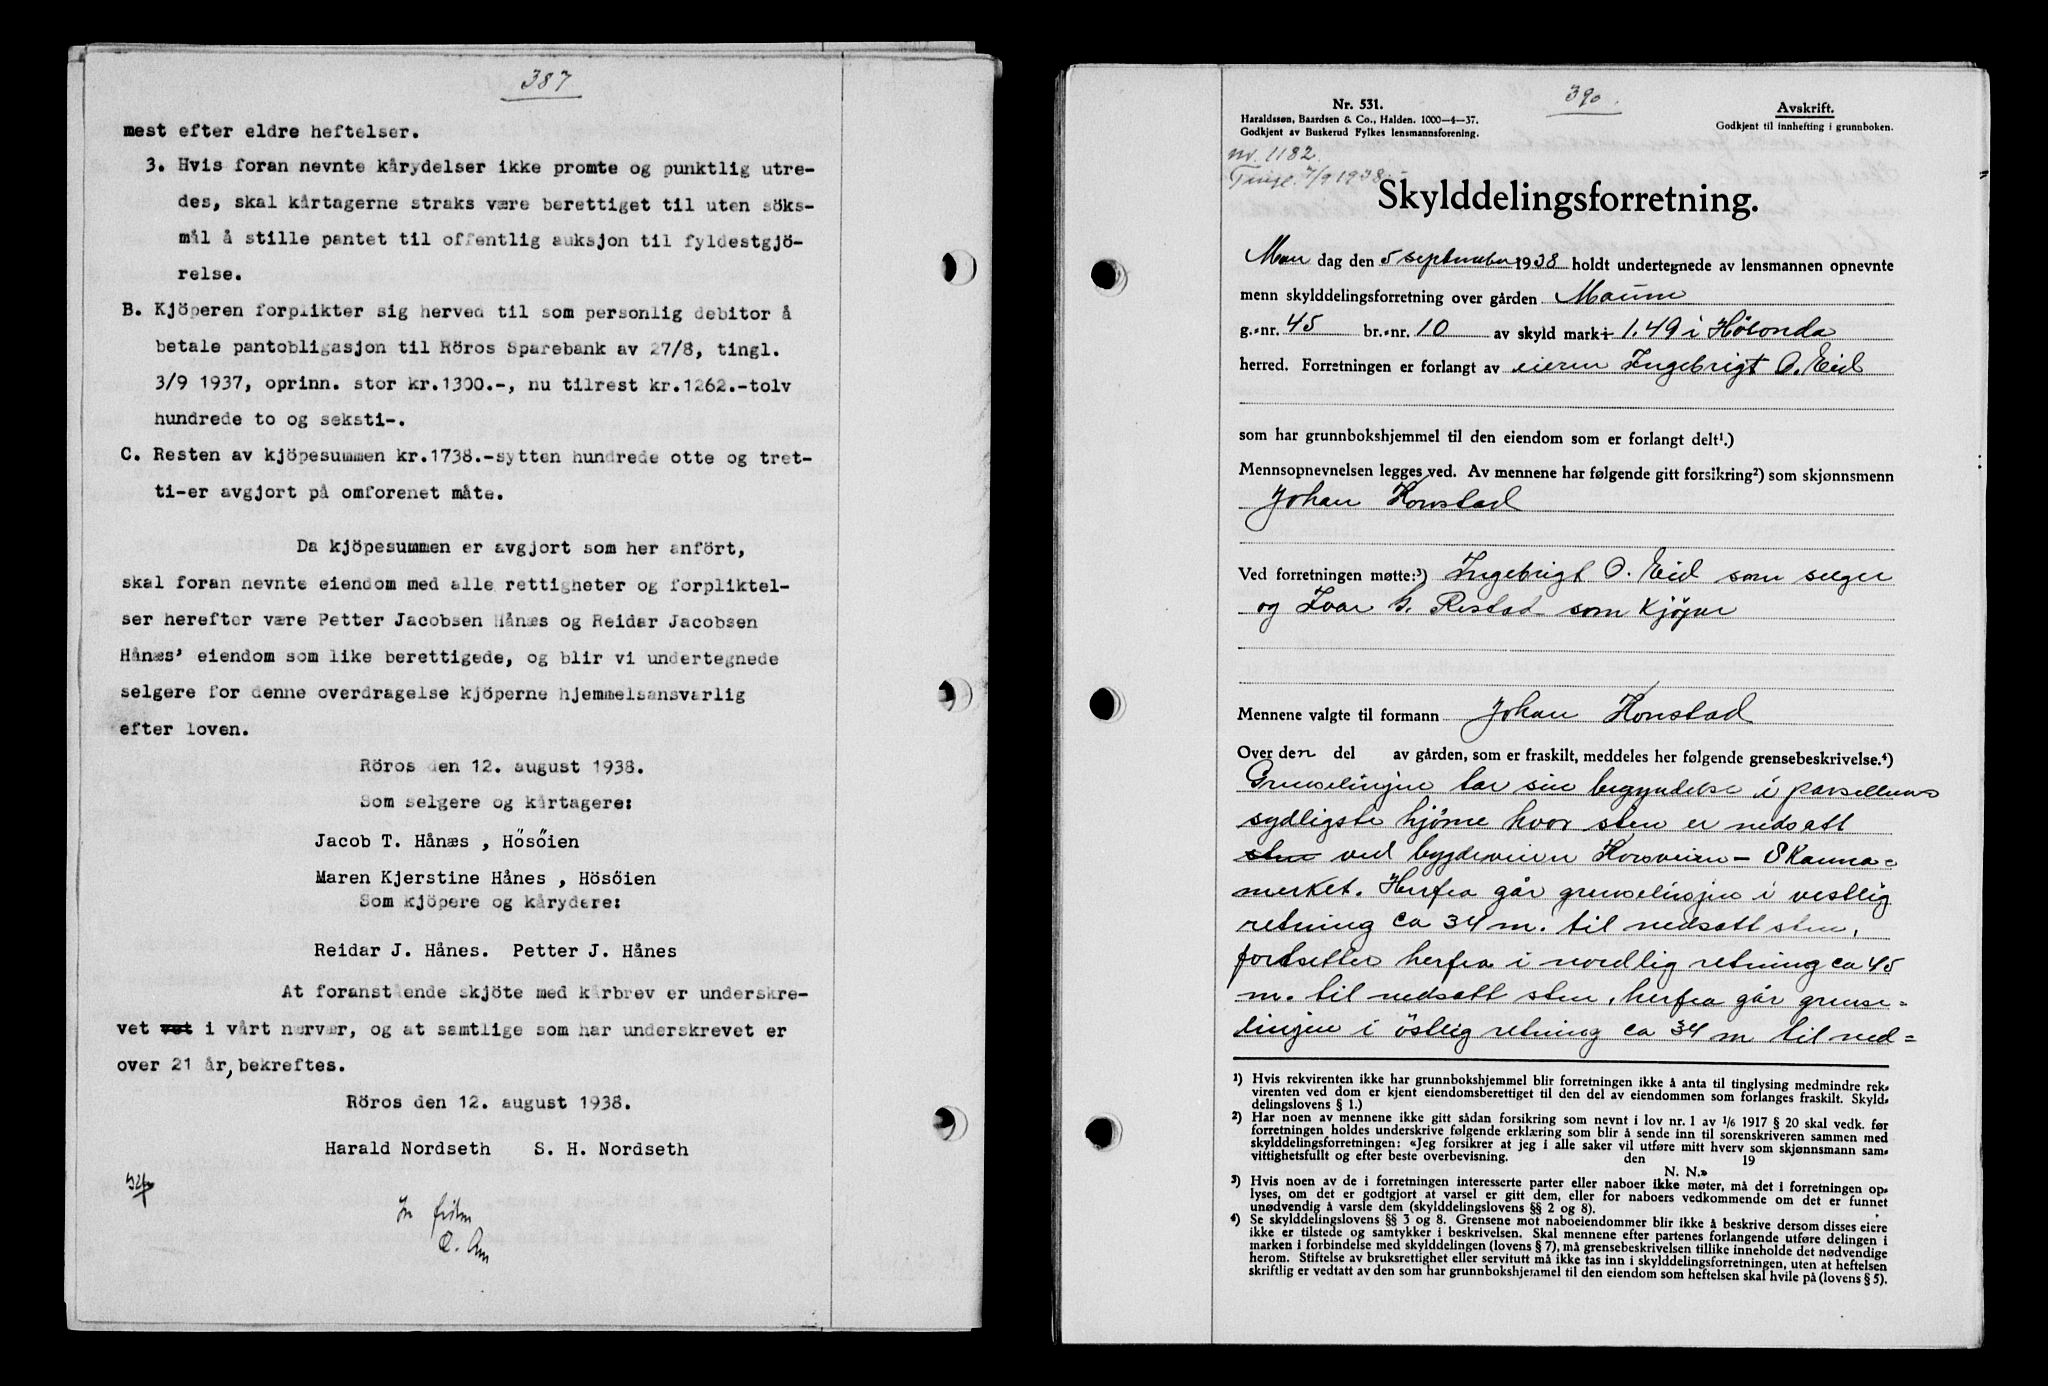 387
mest efter eldre heftelser.
3. Hvis foran nevnte kårydelser ikke promte og punktlig utre-
des, skal kårtagerne straks være berettiget til uten söks-
mål å stille pantet til offentlig auksjon til fyldestgjö-
relse.
B. Kjöperen forplikter sig herved til som personlig debitor å
betale pantobligasjon til Röros Sparebank av 27/8, tingl.
3/9 1937, oprinn. stor kr.1300.-, nu tilrest kr.1262.-tolv
hundrede to og seksti-.
C. Resten av kjöpesummen kr.1738.-sytten hundrede otte og tret-
ti-er avgjort på omforenet måte.
Da kjöpesummen er avgjort som her anfört,
skal foran nevnte eiendom med alle rettigheter og forpliktel-
ser herefter være Petter Jacobsen Hånæs og Reidar Jacobsen
Hånæs' eiendom som like berettigede, og blir vi undertegnede
selgere for denne overdragelse kjöperne hjemmelsansvarlig
efter loven.
Röros den 12. august 1938.
Som selgere og kårtagere:
Jacob T. Hånæs , Hösöien
Maren Kjerstine Hånes , Hösöien
Som kjöpere og kårydere:
Reidar J. Hånes. Petter J. Hånes
At foranstående skjöte med kårbrev er underskre-
vet vet i vårt nærvær, og at samtlige som har underskrevet er
over 21 år, bekreftes.
Röros den 12. august 1938.
Harald Nordseth S. H. Nordseth
390
Nr. 531.
Haraldssøn, Baardsen & Co., Halden. 1000-4-37.
Godkjent av Buskerud Fylkes lensmannsforening.
Avskrift.
Godkjent til innhefting i grunnboken.
nr. 1182.
Tingl. 7/9 1938
Skylddelingsforretning.
Man dag den 5 september 1938 holdt undertegnede av lensmannen opnevnte
menn skylddelingsforretning over gården Maume
g.-nr. 45 br.-nr. 10 av skyld mark 1.49 i Hölonda
herred. Forretningen er forlangt av eieren Ingebrigt O. Eid
som har grunnbokshjemmel til den eiendom som er forlangt delt¹.)
Mennsopnevnelsen legges ved. Av mennene har følgende gitt forsikring²) som skjønnsmenn
Johan Konstad
Ved forretningen møtte:³) Ingebrigt O. Eid som selger
og Ivar G. Restad som kjöper
Mennene valgte til formann Johan Konstad
Over den del av gården, som er fraskilt, meddeles her følgende grensebeskrivelse.⁴)
Grenselinjen tar sin begyndelse i parsellens
sydligste hjörne hvor sten er nedsatt
sten ved bygdeveien Korsveien - Skauna-
merket. Herfra går grenselinjen i vestlig
retning ca 34 m. til nedsatt sten,
fortsetter herfra i nordlig retning ca 45
m. til nedsatt sten, herfra går grense-
linjen i östlig retning ca 34 m til ned-
¹) Hvis rekvirenten ikke har grunnbokshjemmel blir forretningen ikke å anta til tinglysing medmindre rek-
virenten ved dom er kjent eiendomsberettiget til den del av eiendommen som forlanges fraskilt. Skyld-
delingslovens § 1.)
²) Har noen av mennene ikke gitt sådan forsikring som nevnt i lov nr. 1 av 1/6 1917 § 20 skal vedk. før
forretningen holdes underskrive følgende erklæring som blir å sende inn til sorenskriveren sammen med
skylddelingsforretningen: «Jeg forsikrer at jeg i alle saker vil utføre mitt hverv som skjønnsmann sam-
vittighetsfullt og efter beste overbevisning. den 19
N. N.»
³) Hvis noen av de i forretningen interesserte parter eller naboer ikke møter, må det i forretningen op-
lyses, om det er godtgjort at varsel er gitt dem, eller for naboers vedkommende om det er funnet
unødvendig å varsle dem (skylddelingslovens §§ 2 og 8).
⁴) Se skylddelingslovens §§ 3 og 8. Grensene mot naboeiendommer blir ikke å beskrive dersom disses eiere
ikke er tilstede og samtykker i beskrivelsen. Skal mennene efter partenes forlangende utføre delingen i
marken i forbindelse med skylddelingen (lovens § 7), må grensebeskrivelsen tillike inneholde det nødvendige
herom. Stiftelse av bruksrettighet eller servitutt må ikke tas inn i skylddelingsforretningen, uten at heftelsen
skriftlig er vedtatt av den som har grunnbokshjemmel til den eiendom som heftelsen skal hvile på (lovens § 5).